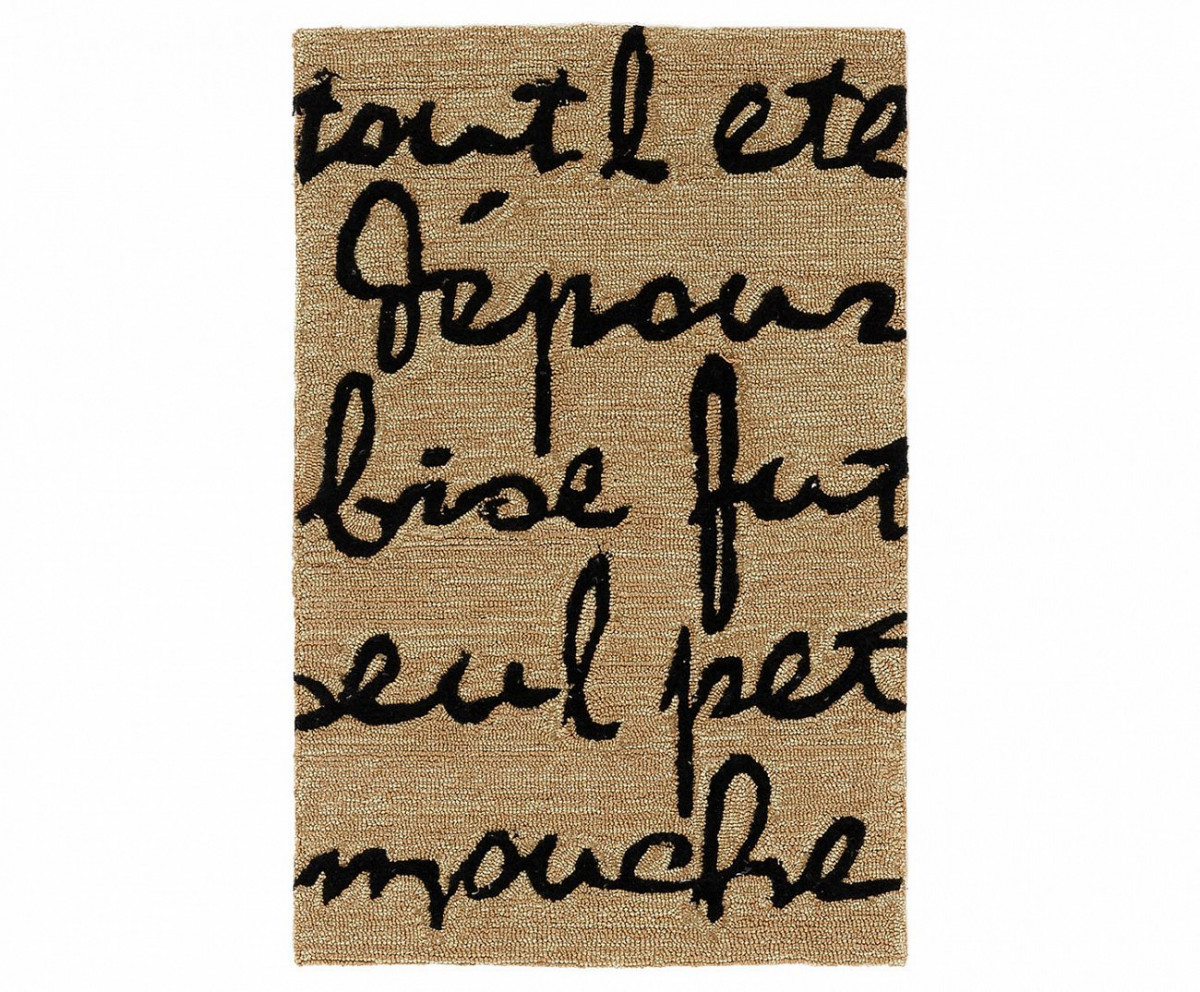 tout l ete
Dépour
bise fut
seul pet
mouche